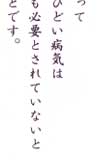 って
ひどい病気は
も必要とされていないと
とです。